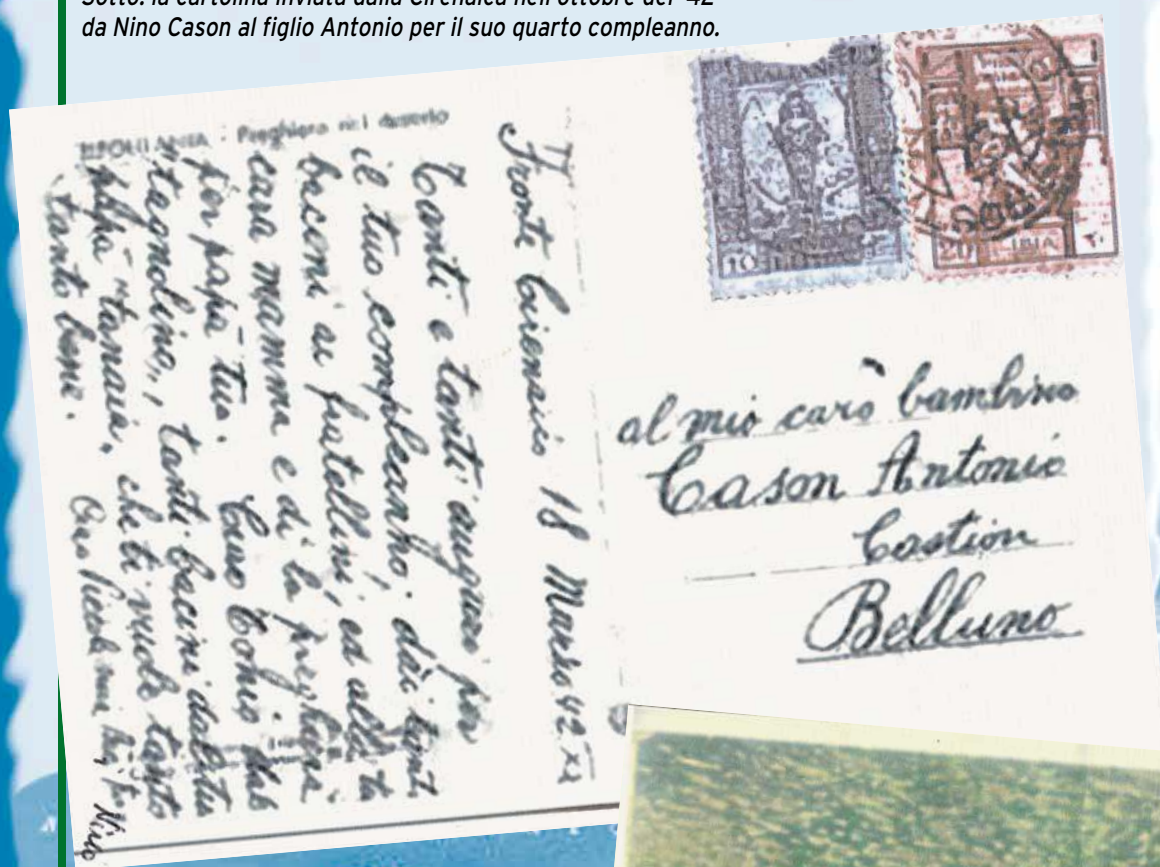 Sotto: la cartolina inviata dalla Cirenaica nell'ottobre del '42
da Nino Cason al figlio Antonio per il suo quarto compleanno.
Preghiera nel deserto
Fronte Cirenaico 18 Marzo 42 XX
Tanti e tanti auguri per
il tuo compleanno, dai tanti
bacini ai fratellini, ed alla ta
cara mamma e di la preghiera
per papà tuo. Caro Tonio dal
tanti bacini dal tuo
papà che ti vuole tanto
tanto bene. Ciao
Nino
10
20 LIBIA
al mio caro bambino
Cason Antonio
Castion
Belluno